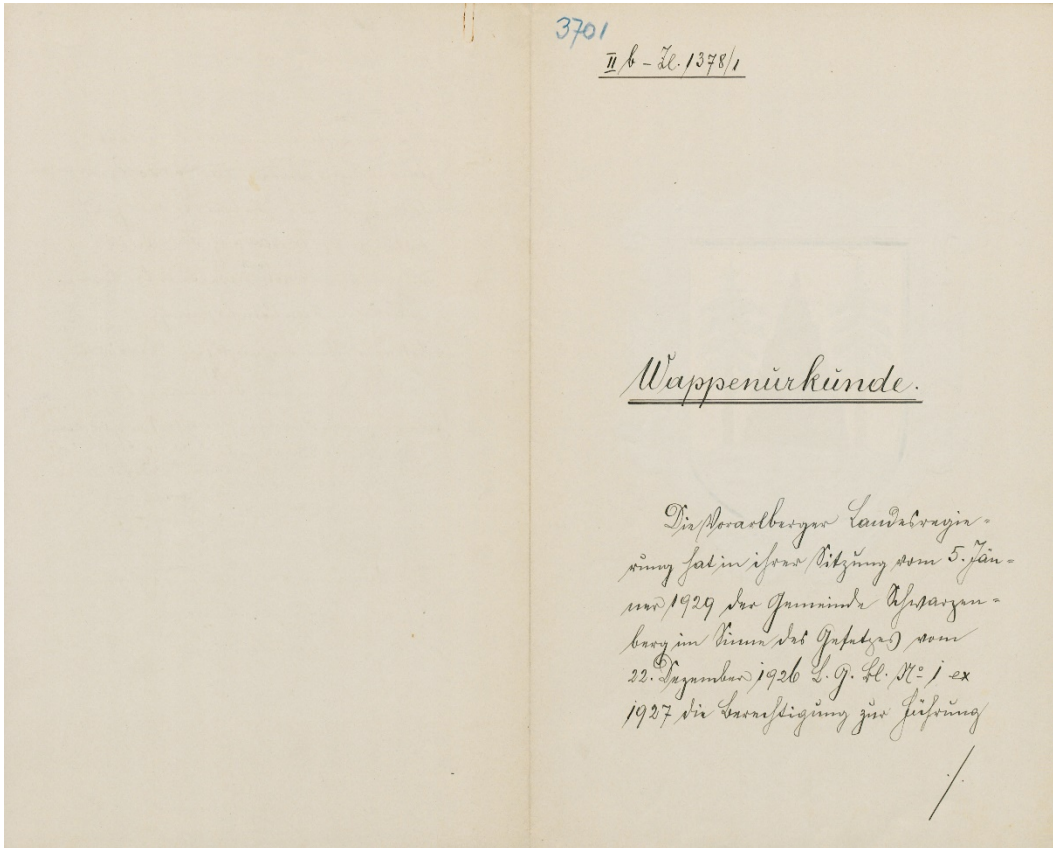 3701
II b – Zl. 1378/1
Wappenurkunde.
Die Vorarlberger Landesregie=
rung hat in ihrer Sitzung vom 5. Jän=
ner 1929 der Gemeinde Schwarzen=
berg im Sinne des Gesetzes vom
22. Dezember 1926 L. G. Bl. No 1 ex
1927 die Berechtigung zur Führung
./.